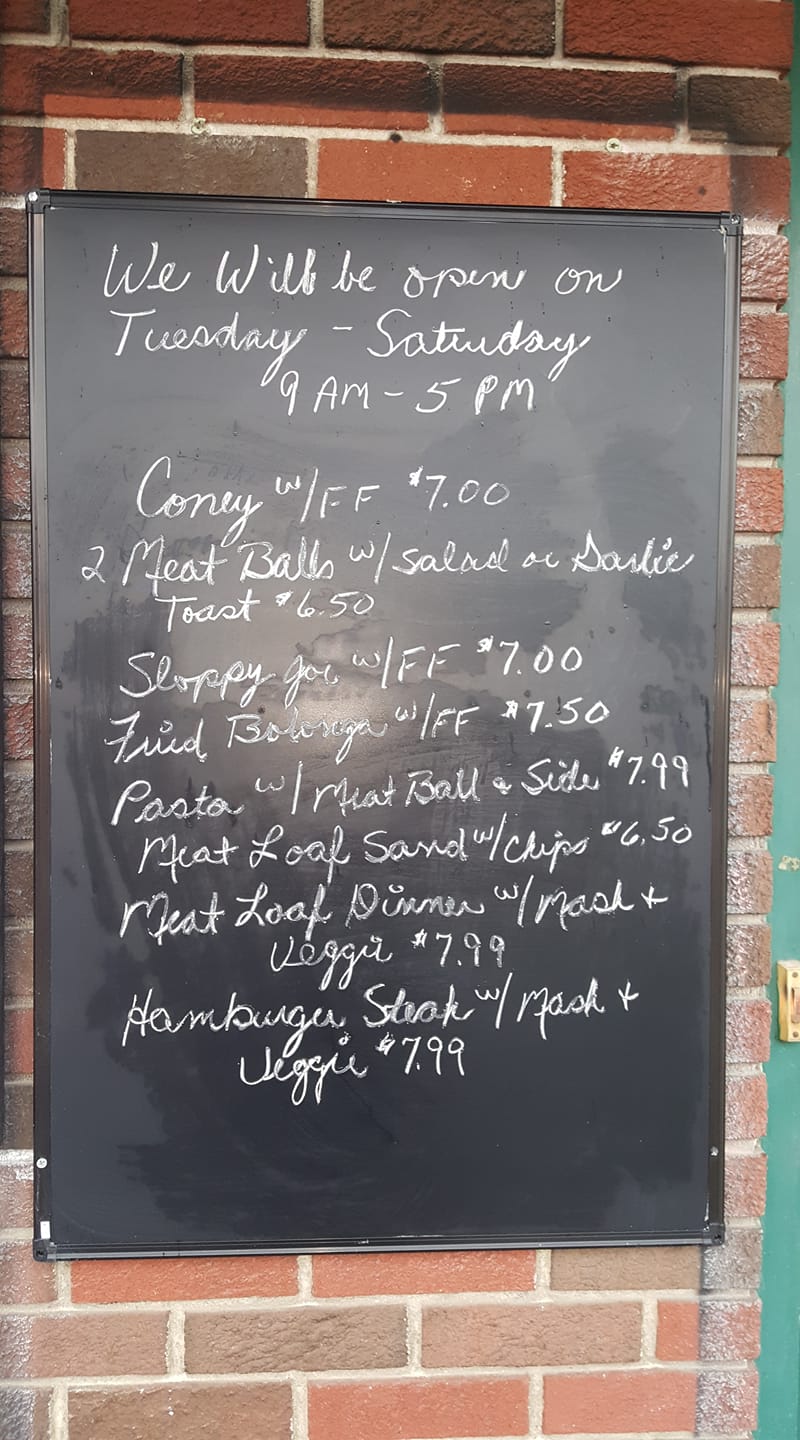 We Will be open on
Tuesday - Saturday
9 AM - 5 PM
Coney w/FF $7.00
2 Meat Balls w/Salad or Garlic
Toast $6.50
Sloppy Joe w/FF $7.00
Fried Bolonga w/FF $7.50
Pasta w/Meat Ball & Side $7.99
Meat Loaf Sand w/Chips $6.50
Meat Loaf Dinner w/Mash +
Veggie $7.99
Hamburger Steak w/Mash +
Veggie $7.99